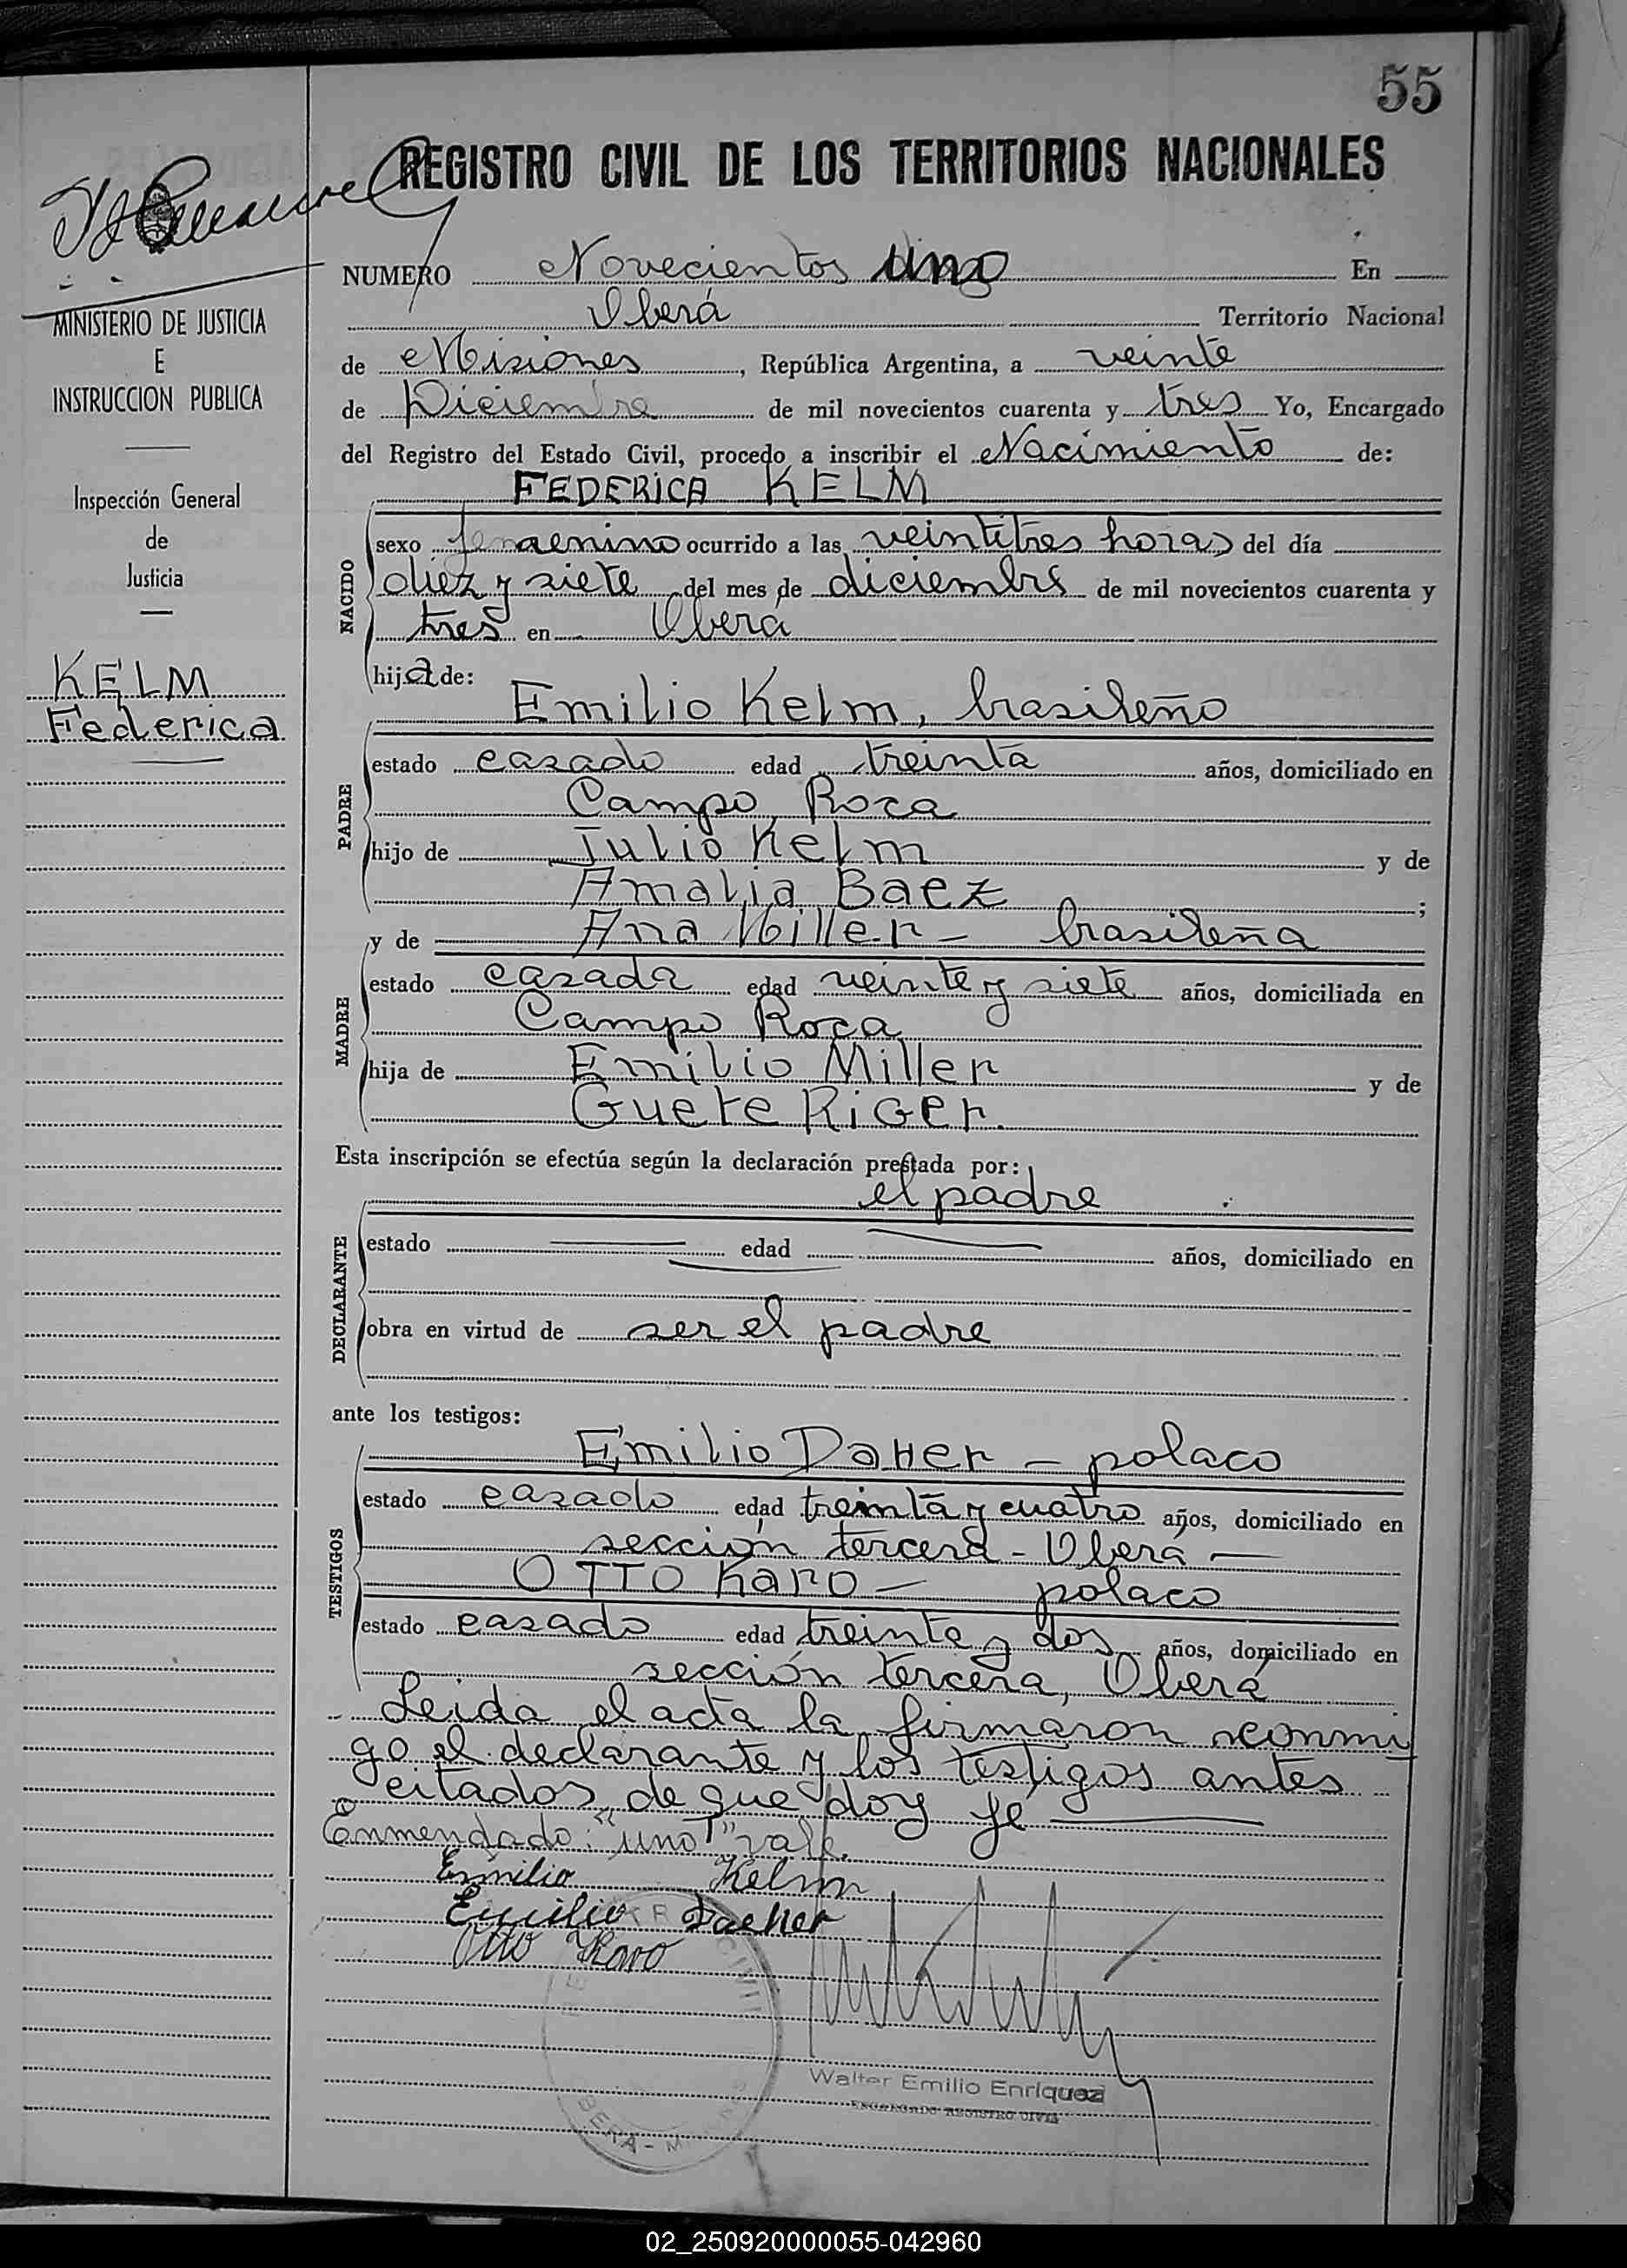 55
REGISTRO CIVIL DE LOS TERRITORIOS NACIONALES
MINISTERIO DE JUSTICIA
E
INSTRUCCION PUBLICA
Inspección General
de
Justicia
KELM
Federica
NUMERO Novecientos uno En
Oberá Territorio Nacional
de Misiones, República Argentina, a veinte
de Diciembre de mil novecientos cuarenta y tres Yo, Encargado
del Registro del Estado Civil, procedo a inscribir el Nacimiento de:
FEDERICA KELM
NACIDO
sexo femenino ocurrido a las veintitres horas del día
diez y siete del mes de diciembre de mil novecientos cuarenta y
tres en Oberá
hija de:
Emilio Kelm, brasileño
PADRE
estado casado edad treinta años, domiciliado en
Campo Roca
hijo de Julio Kelm y de
Amalia Baez ;
y de Ana Miller - brasileña
MADRE
estado casada edad veinte y siete años, domiciliada en
Campo Roca
hija de Emilio Miller y de
Guete Riger.
Esta inscripción se efectúa según la declaración prestada por:
el padre
DECLARANTE
estado edad años, domiciliado en
obra en virtud de ser el padre
ante los testigos:
Emilio Daher - polaco
TESTIGOS
estado casado edad treinta y cuatro años, domiciliado en
sección tercera - Oberá -
OTTO Karo - polaco
estado casado edad treinta y dos años, domiciliado en
sección tercera, Oberá
Leida el acta la firmaron conmi
go el declarante y los testigos antes
citados, de que doy fe
Enmendado: "uno" vale.
Emilio Kelm
Emilio Daeher
Otto Karo
Walter Emilio Enriquez
ENCARGADO REGISTRO CIVIL
OBERA - M
02_250920000055-042960